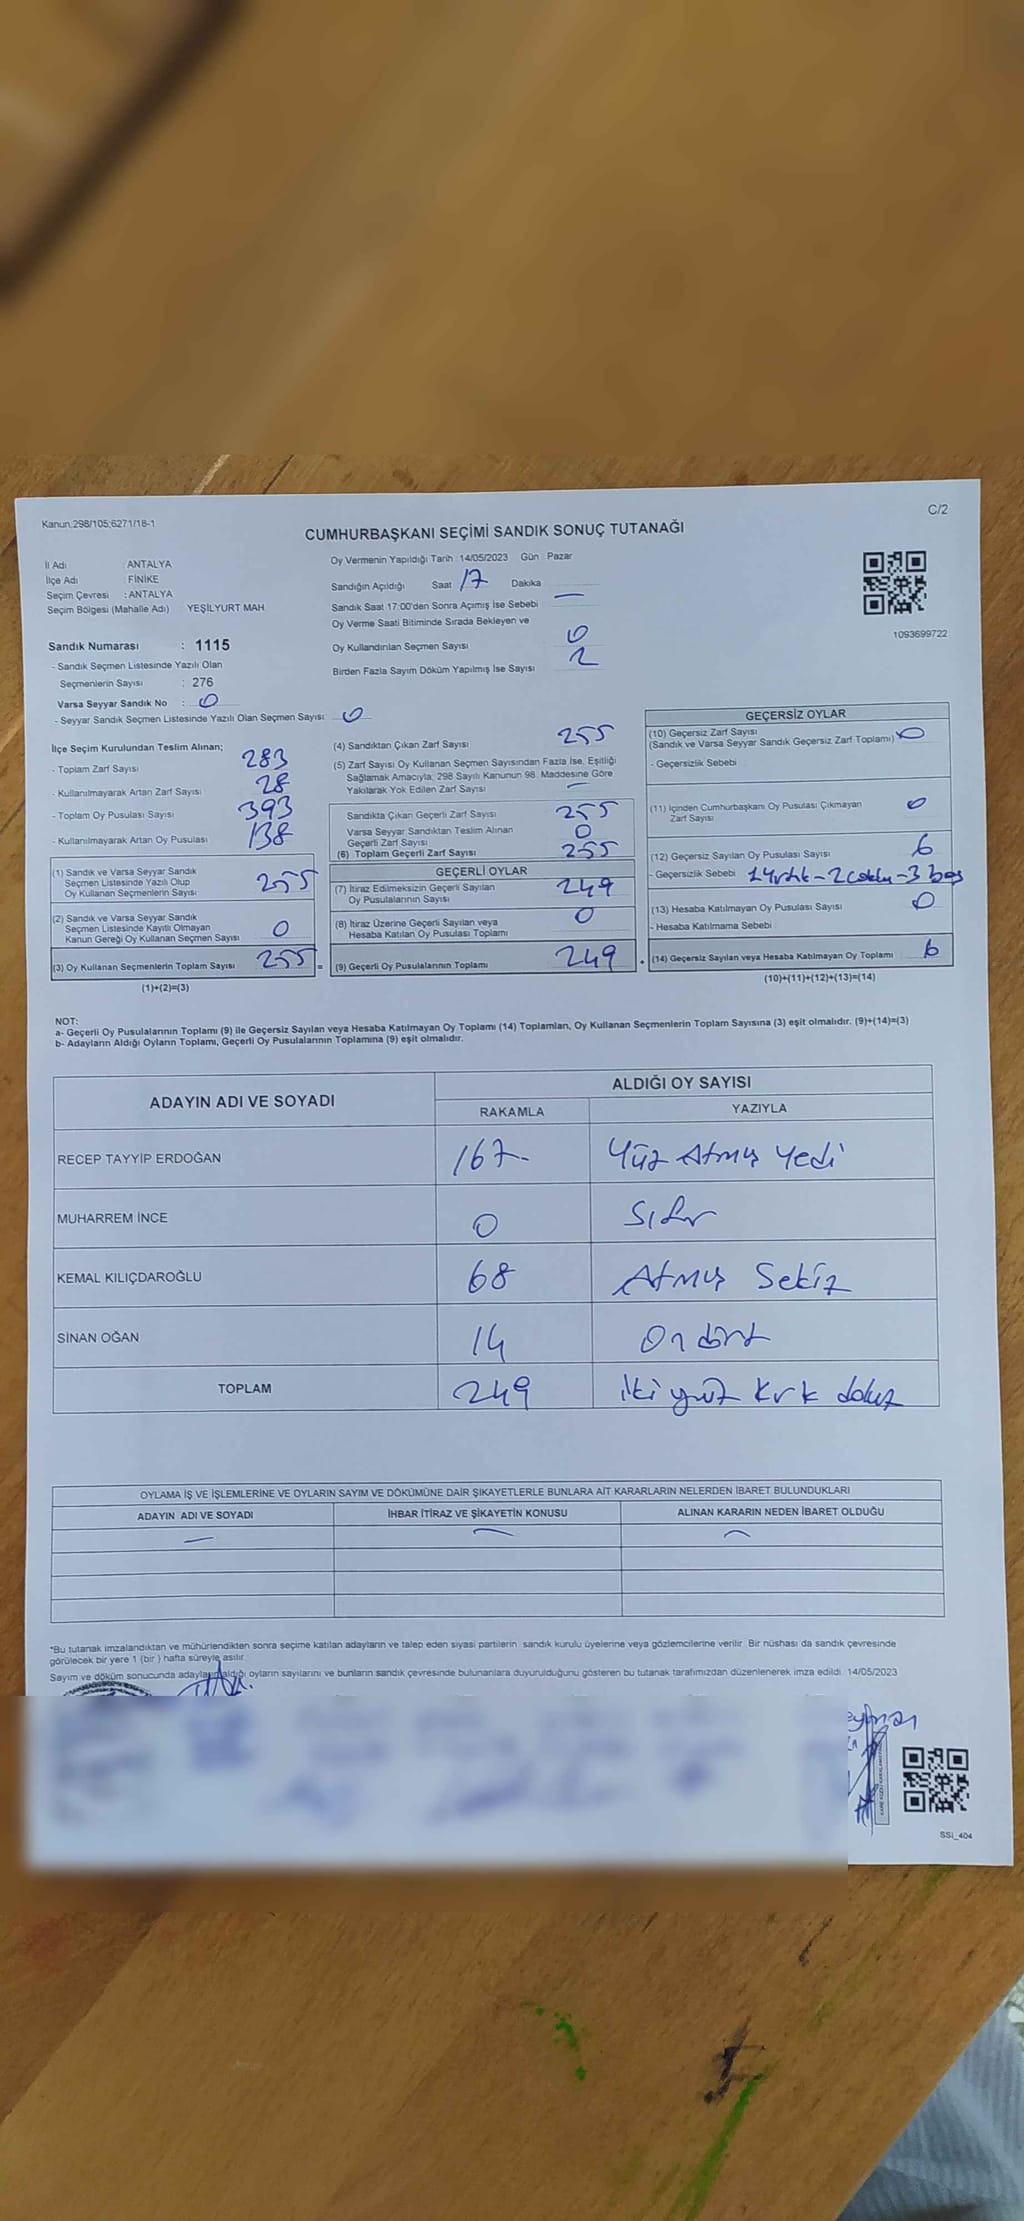 Kanun;298/105;6271/18-1
C/2
CUMHURBAŞKANI SEÇİMİ SANDIK SONUÇ TUTANAĞI
İl Adı : ANTALYA
İlçe Adı : FİNİKE
Seçim Çevresi : ANTALYA
Seçim Bölgesi (Mahalle Adı) YEŞİLYURT MAH.
Oy Vermenin Yapıldığı Tarih :14/05/2023 Gün Pazar
Sandığın Açıldığı Saat 17 Dakika —
Sandık Saat 17:00'den Sonra Açımış İse Sebebi
Oy Verme Saati Bitiminde Sırada Bekleyen ve
Oy Kullandırılan Seçmen Sayısı 0
Birden Fazla Sayım Döküm Yapılmış İse Sayısı 2
1093699722
Sandık Numarası : 1115
- Sandık Seçmen Listesinde Yazılı Olan
Seçmenlerin Sayısı : 276
Varsa Seyyar Sandık No : 0
- Seyyar Sandık Seçmen Listesinde Yazılı Olan Seçmen Sayısı: 0
İlçe Seçim Kurulundan Teslim Alınan;
- Toplam Zarf Sayısı 283
- Kullanılmayarak Artan Zarf Sayısı 28
- Toplam Oy Pusulası Sayısı 393
- Kullanılmayarak Artan Oy Pusulası 138
(1) Sandık ve Varsa Seyyar Sandık
Seçmen Listesinde Yazılı Olup
Oy Kullanan Seçmenlerin Sayısı 255
(2) Sandık ve Varsa Seyyar Sandık
Seçmen Listesinde Kayıtlı Olmayan
Kanun Gereği Oy Kullanan Seçmen Sayısı 0
(3) Oy Kullanan Seçmenlerin Toplam Sayısı 255 =
(1)+(2)=(3)
(4) Sandıktan Çıkan Zarf Sayısı 255
(5) Zarf Sayısı Oy Kullanan Seçmen Sayısından Fazla İse, Eşitliği
Sağlamak Amacıyla; 298 Sayılı Kanunun 98. Maddesine Göre
Yakılarak Yok Edilen Zarf Sayısı —
Sandıkta Çıkan Geçerli Zarf Sayısı 255
Varsa Seyyar Sandıktan Teslim Alınan
Geçerli Zarf Sayısı 0
(6) Toplam Geçerli Zarf Sayısı 255
GEÇERLİ OYLAR
(7) İtiraz Edilmeksizin Geçerli Sayılan
Oy Pusulalarının Sayısı 249
(8) İtiraz Üzerine Geçerli Sayılan veya
Hesaba Katılan Oy Pusulası Toplamı 0
(9) Geçerli Oy Pusulalarının Toplamı 249
GEÇERSİZ OYLAR
(10) Geçersiz Zarf Sayısı
(Sandık ve Varsa Seyyar Sandık Geçersiz Zarf Toplamı) 0
- Geçersizlik Sebebi
(11) İçinden Cumhurbaşkanı Oy Pusulası Çıkmayan
Zarf Sayısı 0
(12) Geçersiz Sayılan Oy Pusulası Sayısı 6
- Geçersizlik Sebebi 1 Yırtık - 2 - 3 boş
(13) Hesaba Katılmayan Oy Pusulası Sayısı 0
- Hesaba Katılmama Sebebi :
(14) Geçersiz Sayılan veya Hesaba Katılmayan Oy Toplamı 6
(10)+(11)+(12)+(13)=(14)
NOT:
a- Geçerli Oy Pusulalarının Toplamı (9) ile Geçersiz Sayılan veya Hesaba Katılmayan Oy Toplamı (14) Toplamları, Oy Kullanan Seçmenlerin Toplam Sayısına (3) eşit olmalıdır. (9)+(14)=(3)
b- Adayların Aldığı Oyların Toplamı, Geçerli Oy Pusulalarının Toplamına (9) eşit olmalıdır.
ADAYIN ADI VE SOYADI
ALDIĞI OY SAYISI
RAKAMLA YAZIYLA
RECEP TAYYİP ERDOĞAN 167- Yüz Atmış Yedi
MUHARREM İNCE 0 Sıfır
KEMAL KILIÇDAROĞLU 68 Atmış Sekiz
SİNAN OĞAN 14 On dört
TOPLAM 249 iki yüz kırk dokuz
OYLAMA İŞ VE İŞLEMLERİNE VE OYLARIN SAYIM VE DÖKÜMÜNE DAİR ŞİKAYETLERLE BUNLARA AİT KARARLARIN NELERDEN İBARET BULUNDUKLARI
ADAYIN ADI VE SOYADI İHBAR İTİRAZ VE ŞİKAYETİN KONUSU ALINAN KARARIN NEDEN İBARET OLDUĞU
— — —
*Bu tutanak imzalandıktan ve mühürlendikten sonra seçime katılan adayların ve talep eden siyasi partilerin sandık kurulu üyelerine veya gözlemcilerine verilir. Bir nüshası da sandık çevresinde
görülecek bir yere 1 (bir) hafta süreyle asılır.
Sayım ve döküm sonucunda adayların aldığı oyların sayılarını ve bunların sandık çevresinde bulunanlara duyurulduğunu gösteren bu tutanak tarafımızdan düzenlenerek imza edildi. 14/05/2023
SSI_404